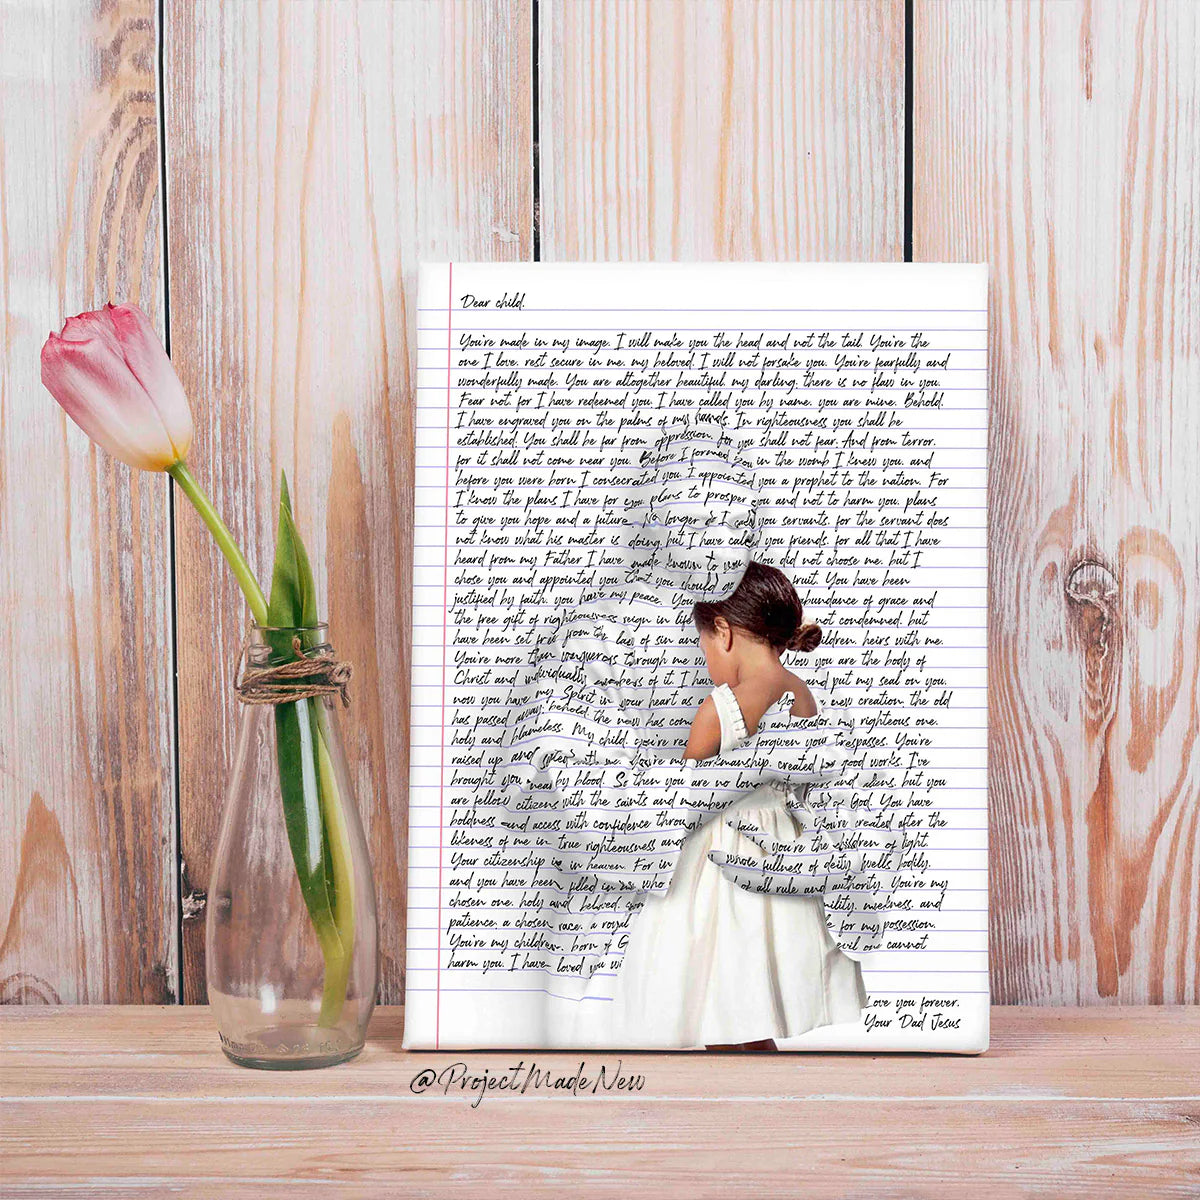 Dear child,
You're made in my image. I will make you the head and not the tail. You're the
one I love, rest secure in me, my beloved. I will not forsake you. You're fearfully and
wonderfully made. You are altogether beautiful, my darling, there is no flaw in you.
Fear not, for I have redeemed you. I have called you by name, you are mine. Behold,
I have engraved you on the palms of my hands. In righteousness you shall be
established. You shall be far from oppression, for you shall not fear. And from terror,
for it shall not come near you. Before I formed you in the womb I knew you, and
before you were born I consecrated you. I appointed you a prophet to the nation. For
I know the plans I have for you, plans to prosper you and not to harm you, plans
to give you hope and a future. No longer do I call you servants, for the servant does
not know what his master is doing, but I have called you friends, for all that I have
heard from my Father I have made known to you. You did not choose me, but I
chose you and appointed you that you should go fruit. You have been
justified by faith, you have my peace. You abundance of grace and
the free gift of righteousness reign in life not condemned, but
have been set free from the law of sin and children, heirs with me.
You're more than conquerors through me Now you are the body of
Christ and individually members of it. I have and put my seal on you,
now you have my Spirit in your heart as a new creation, the old
has passed away, behold the new has come my ambassador, my righteous one,
holy and blameless. My child, you're forgiven your trespasses. You're
raised up and with me. You're my workmanship, created for good works. I've
brought you near by blood. So then you are no longer and aliens, but you
are fellow citizens with the saints and members of God. You have
boldness and access with confidence through faith. You're created after the
likeness of me in true righteousness and you're the children of light.
Your citizenship is in heaven. For in whole fullness of deity dwells bodily,
and you have been filled in me who of all rule and authority. You're my
chosen one, holy and beloved, humility, meekness, and
patience, a chosen race, a royal for my possession.
You're my children, born of evil one cannot
harm you. I have loved you
Love you forever,
Your Dad Jesus
@ProjectMadeNew